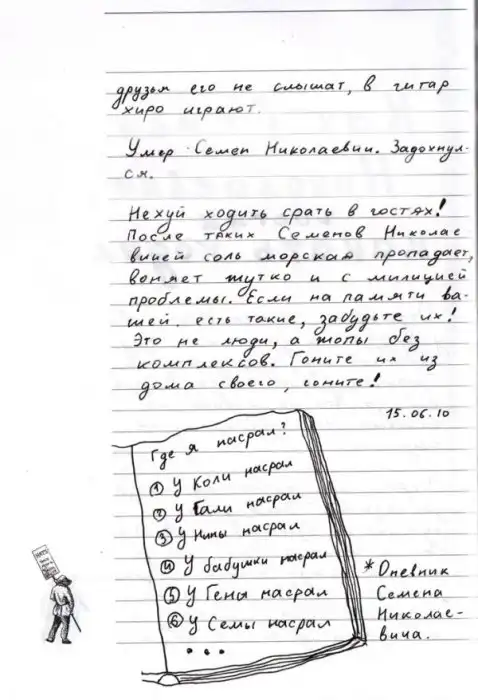 друзья его не слышат, в гитар
хиро играют.
Умер Семен Николаевич. Задохнул-
ся.
Нехуй ходить срать в гостях!
После таких Семенов Николае
вичей соль морская пропадает,
воняет жутко и с милицией
проблемы. Если на памяти ва-
шей есть такие, забудьте их!
Это не люди, а жопы без
комплексов. Гоните их из
дома своего, гоните!
15.06.10
Где я насрал?
① У Коли насрал
② У Гали насрал
③ У Нины насрал
④ У бабушки насрал
⑤ У Гены насрал
⑥ У Семы насрал
...
* Дневник
Семена
Николае-
вича.